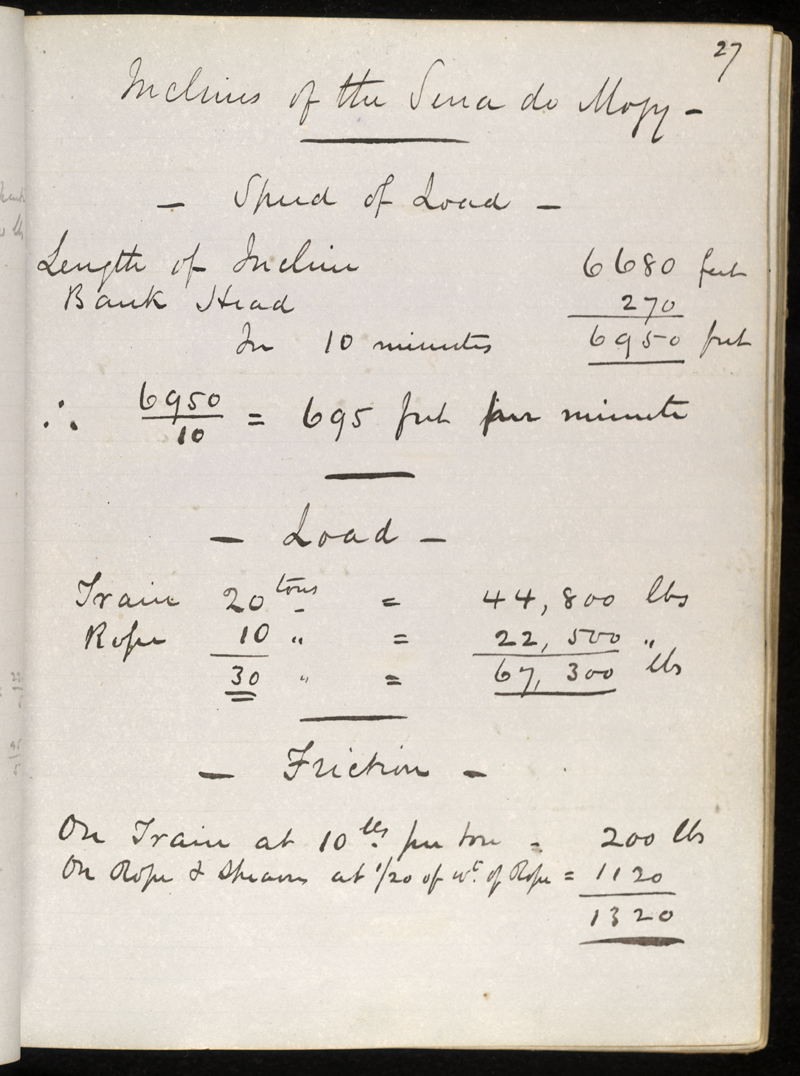 27
Inclines of the Serra do Mogy -
- Speed of Load -
Length of Incline 6680 feet
Bank Head 270
In 10 minutes 6950 feet
∴ 6950/10 = 695 feet per minute
- Load -
Train 20 tons = 44,800 lbs
Rope 10 " = 22,500 "
30 " = 67,300 lbs
- Friction -
On Train at 10 lbs per ton = 200 lbs
On Rope & Sheaves at 1/20 of wt. of Rope = 1120
1320